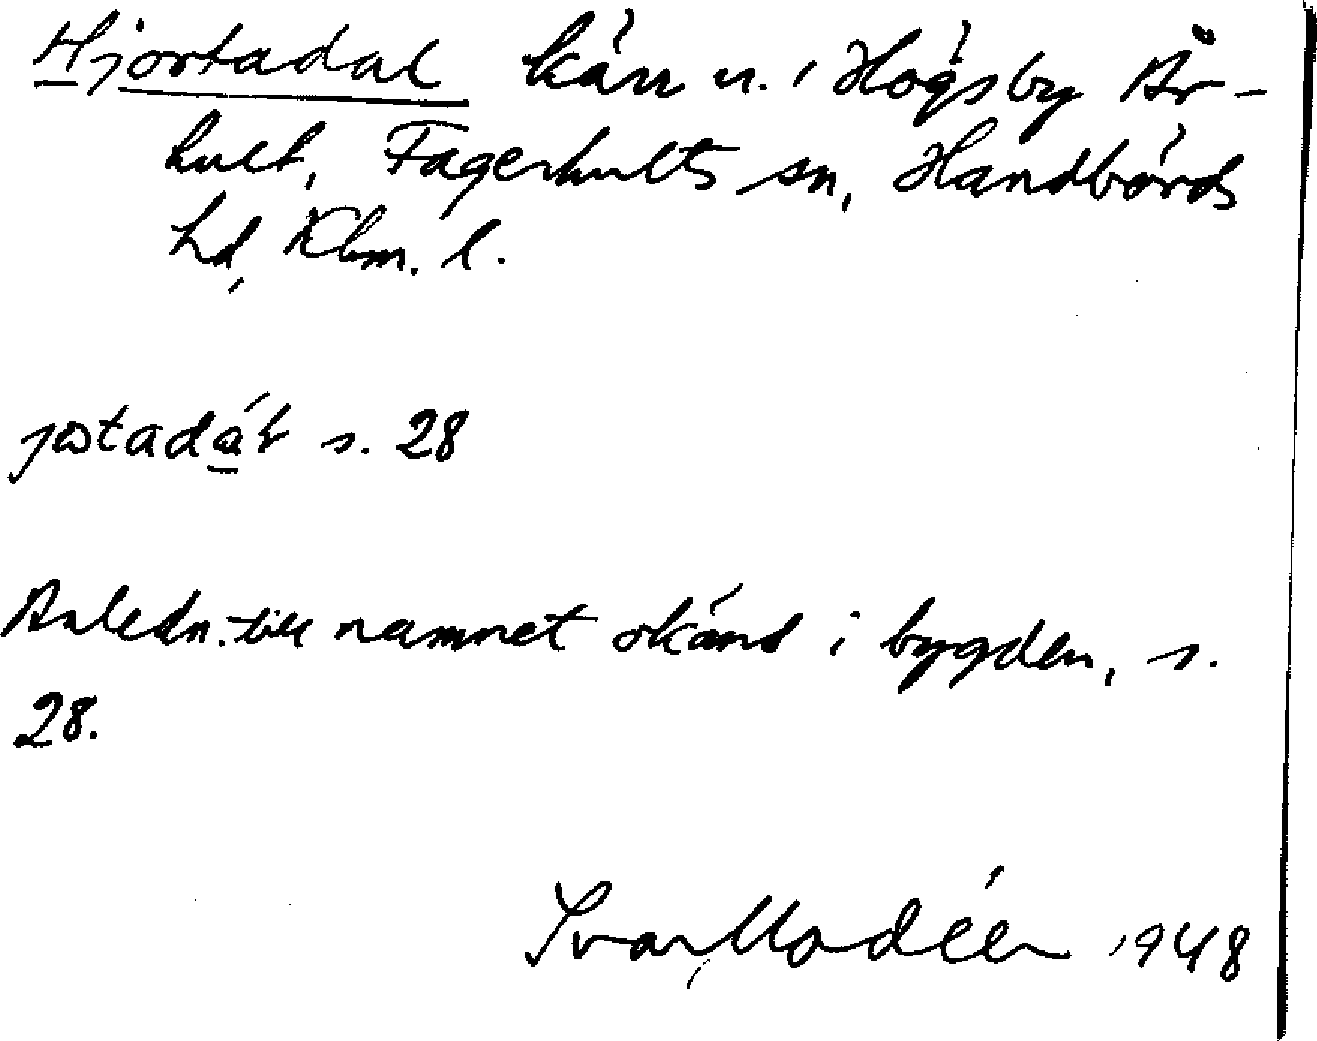 Hjortadal kärr n. i Högsby Är-
hult, Fagerhults sn, Handbörds
hd, Klm. l.
s. 28
Anledn. till namnet okänd i bygden, s.
28.
Ivar Modéer 1948